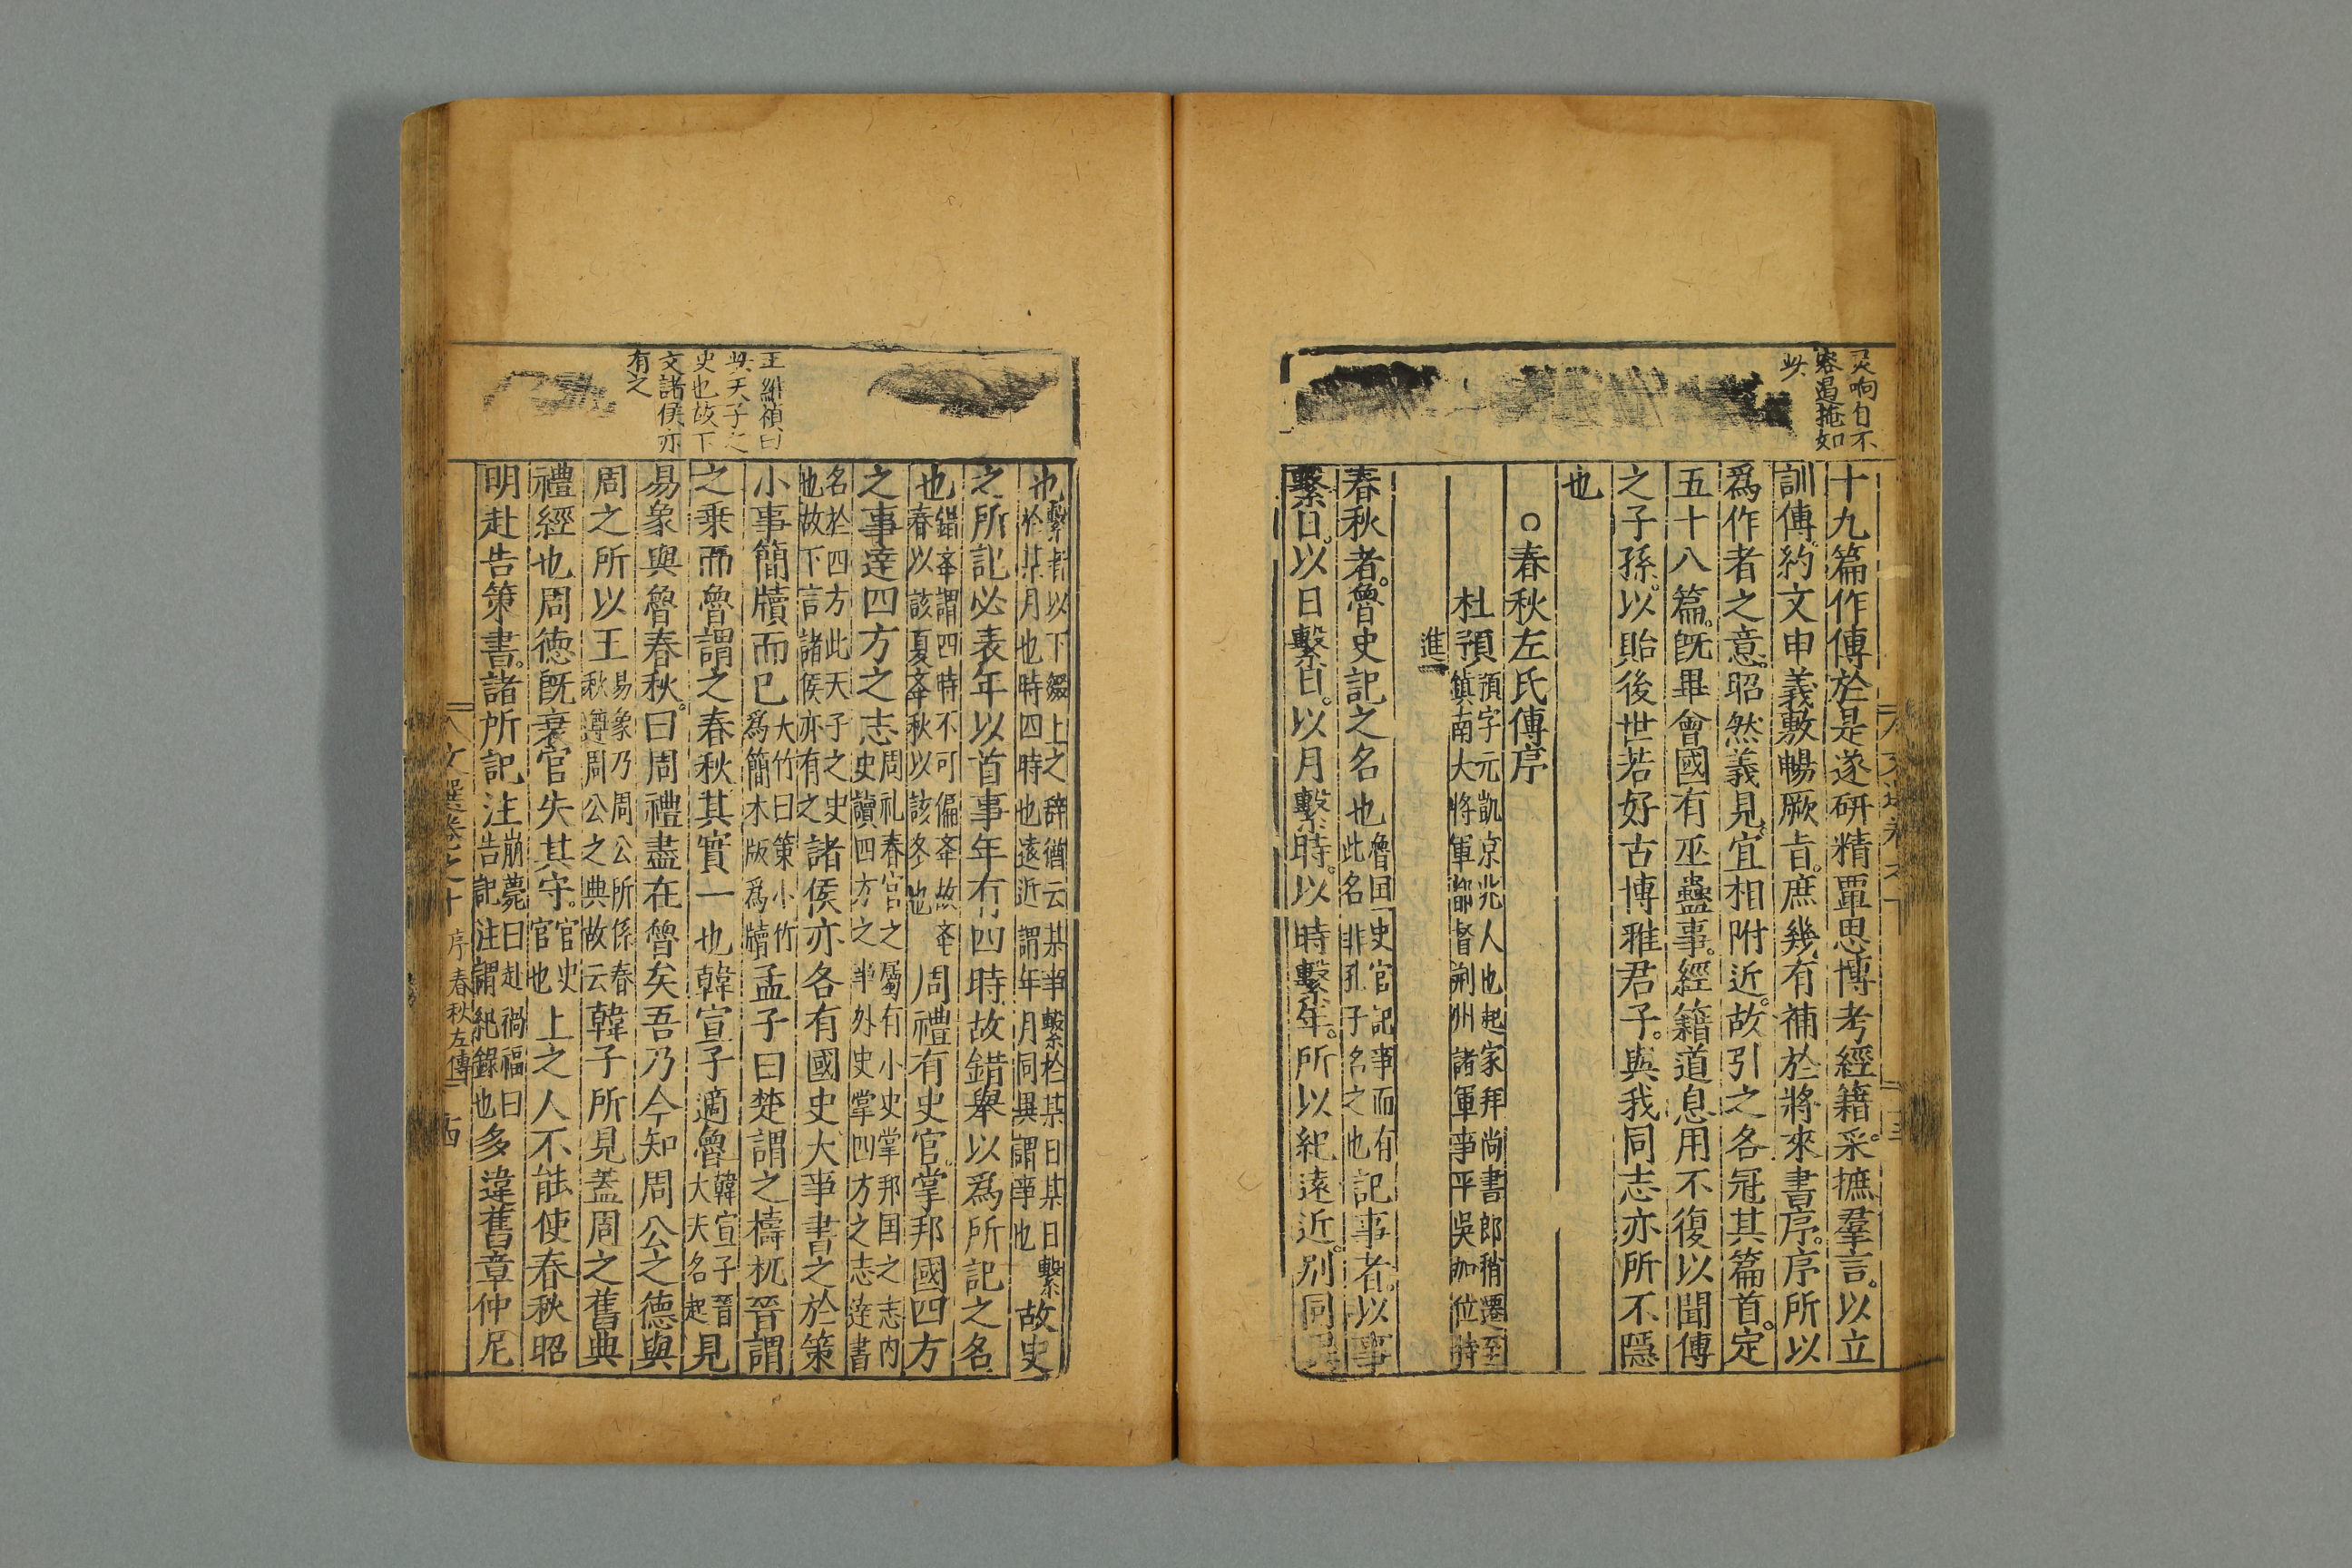 自不
容過掩如
此
十九篇作傳於是遂研精覃思博考經籍采摭羣言以立
訓傳約文申義敷暢厥旨庶幾有補於將來書序序所以
爲作者之意昭然義見宜相附近故引之各冠其篇首定
五十八篇旣畢會國有巫蠱事經籍道息用不復以聞傳
之子孫以貽後世若好古博雅君子與我同志亦所不隱
也
○春秋左氏傳序
杜預
預字元凱京兆人也起家拜尚書郎稍遷至
鎮南大將軍都督荊州諸軍事平吳加位特
進
春秋者魯史記之名也
魯国史官記事而有
此名非孔子名之也
記事者以事
繫日以日繫月以月繫時以時繫年所以紀遠近別同異
王維楨曰
此天子之
史也故下
文諸侯亦
有之
也
繫者以下綴上之辞猶云某事繫於某日某日繫
於某月也時四時也遠近謂年月同異謂事也
故史
之所記必表年以首事年有四時故錯舉以爲所記之名
也
錯夲謂四時不可偏夲故夲
春以該夏夲秋以該冬也
周禮有史官掌邦國四方
之事達四方之志
周礼春官之屬有小史掌邦国之志内
史讀四方之事外史掌四方之志達書
名於四方此天子之史
也故下言諸侯亦有之
諸侯亦各有國史大事書之於策
小事簡牘而已
大竹曰策小竹
爲簡木版爲牘
孟子曰楚謂之檮杌晉謂
之乗而魯謂之春秋其實一也韓宣子適魯
韓宣子晉
大夫名起
見
易象與魯春秋曰周禮盡在魯矣吾乃今知周公之德與
周之所以王
易象乃周公所係春
秋遵周公之典故云
韓子所見蓋周之舊典
禮經也周德旣衰官失其守
官史
官也
上之人不能使春秋昭
明赴告策書諸所記注
崩薨曰赴禍福曰
告記注謂紀錄也
多違舊章仲尼
文選卷之十 序春秋左傳 西